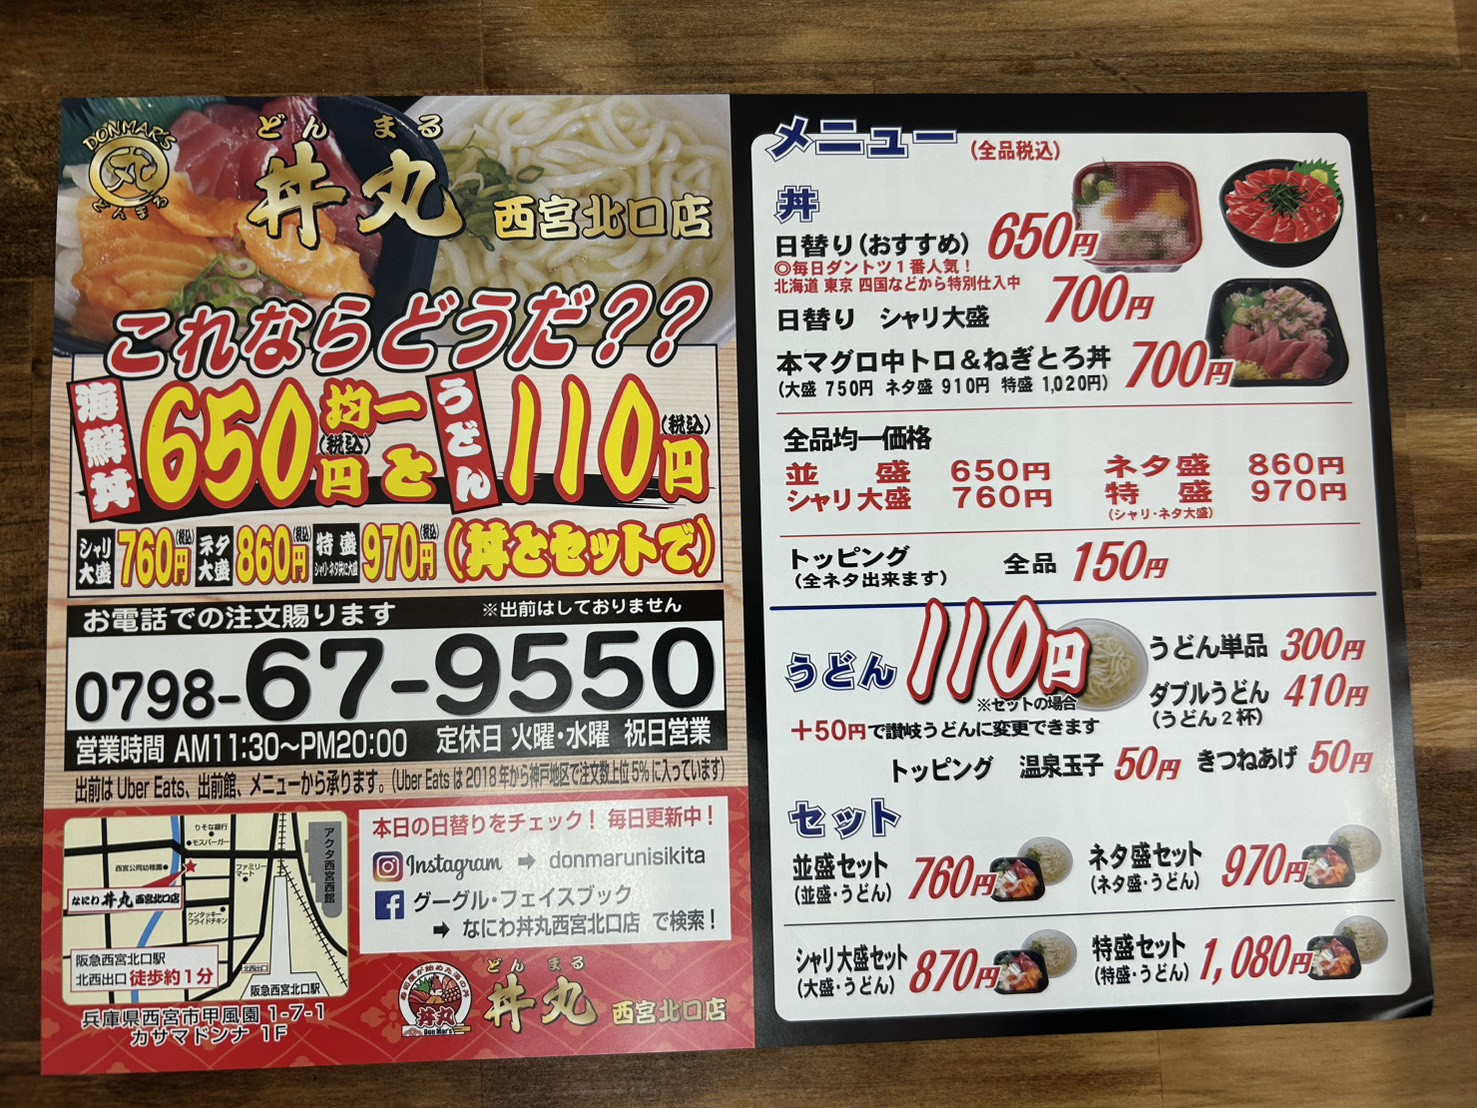 DONMAR'S
丸
どんまる
どんまる
丼丸
西宮北口店
これならどうだ??
海鮮丼 650円均一(税込)とうどん110円(税込)
シャリ大盛 760円(税込) ネタ大盛 860円(税込) 特盛 シャリ・ネタ共に大盛 970円(税込) (丼とセットで)
お電話での注文賜ります ※出前はしておりません
0798-67-9550
営業時間 AM11:30〜PM20:00 定休日 火曜・水曜 祝日営業
出前は Uber Eats、出前館、メニューから承ります。(Uber Eats は 2018 年から神戸地区で注文数上位 5% に入っています)
りそな銀行
モスバーガー
西宮公同幼稚園
ファミリーマート
アクタ西宮西館
なにわ 丼丸 西宮北口店
ケンタッキーフライドチキン
北西出口
阪急西宮北口駅
阪急西宮北口駅
北西出口 徒歩約1分
兵庫県西宮市甲風園 1-7-1
カサマドンナ 1F
本日の日替りをチェック! 毎日更新中!
Instagram ➡ donmarunisikita
グーグル・フェイスブック
➡ なにわ丼丸西宮北口店 で検索!
丼丸
Don Mar's
どんまる
丼丸 西宮北口店
メニュー (全品税込)
丼
日替り(おすすめ) 650円
◎毎日ダントツ1番人気!
北海道 東京 四国などから特別仕入中
日替り シャリ大盛 700円
本マグロ中トロ&ねぎとろ丼 700円
(大盛 750円 ネタ盛 910円 特盛 1,020円)
全品均一価格
並盛 650円 ネタ盛 860円
シャリ大盛 760円 特盛 970円
(シャリ・ネタ大盛)
トッピング 全品 150円
(全ネタ出来ます)
うどん 110円
※セットの場合
うどん単品 300円
ダブルうどん 410円
(うどん2杯)
+50円で讃岐うどんに変更できます
トッピング 温泉玉子 50円 きつねあげ 50円
セット
並盛セット 760円 ネタ盛セット 970円
(並盛・うどん) (ネタ盛・うどん)
シャリ大盛セット 870円 特盛セット 1,080円
(大盛・うどん) (特盛・うどん)